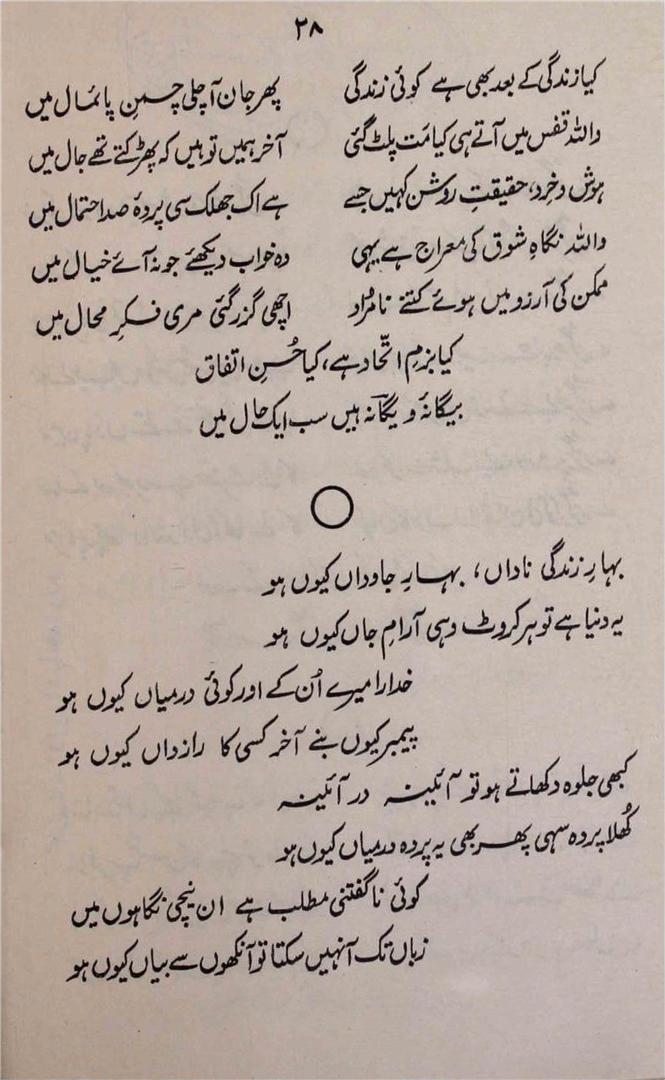 ۳۸
کیا زندگی کے بعد بھی ہے کوئی زندگی پھر جان آ چلی چمنِ پائمال میں
واللہ قفس میں آتے ہی کیا مَت پلٹ گئی آخر ہمیں تو ہیں کہ پھڑکتے تھے جال میں
ہوش و خرد، حقیقتِ روشن کہیں جسے ہے اک جھلک سی پردۂ صد احتمال میں
واللہ نگاہِ شوق کی معراج ہے یہی وہ خواب دیکھئے جو نہ آئے خیال میں
ممکن کی آرزو میں ہوئے کتنے نامُراد اچھی گزر گئی مری فکرِ محال میں
کیا بزمِ اتّحاد ہے، کیا حُسنِ اتفاق
بیگانۂ و یگانہ ہیں سب ایک حال میں
بہارِ زندگی ناداں، بہارِ جاوداں کیوں ہو
یہ دنیا ہے تو ہر کروٹ وہی آرامِ جاں کیوں ہو
خدارا میرے اُن کے اور کوئی درمیاں کیوں ہو
پیمبر کیوں بنے آخر کسی کا رازداں کیوں ہو
کبھی جلوہ دکھاتے ہو تو آئینہ در آئینہ
کُھلا پردہ سہی پھر بھی یہ پردہ درمیاں کیوں ہو
کوئی ناگفتنی مطلب ہے ان نیچی نگاہوں میں
زباں تک آ نہیں سکتا تو آنکھوں سے بیاں کیوں ہو